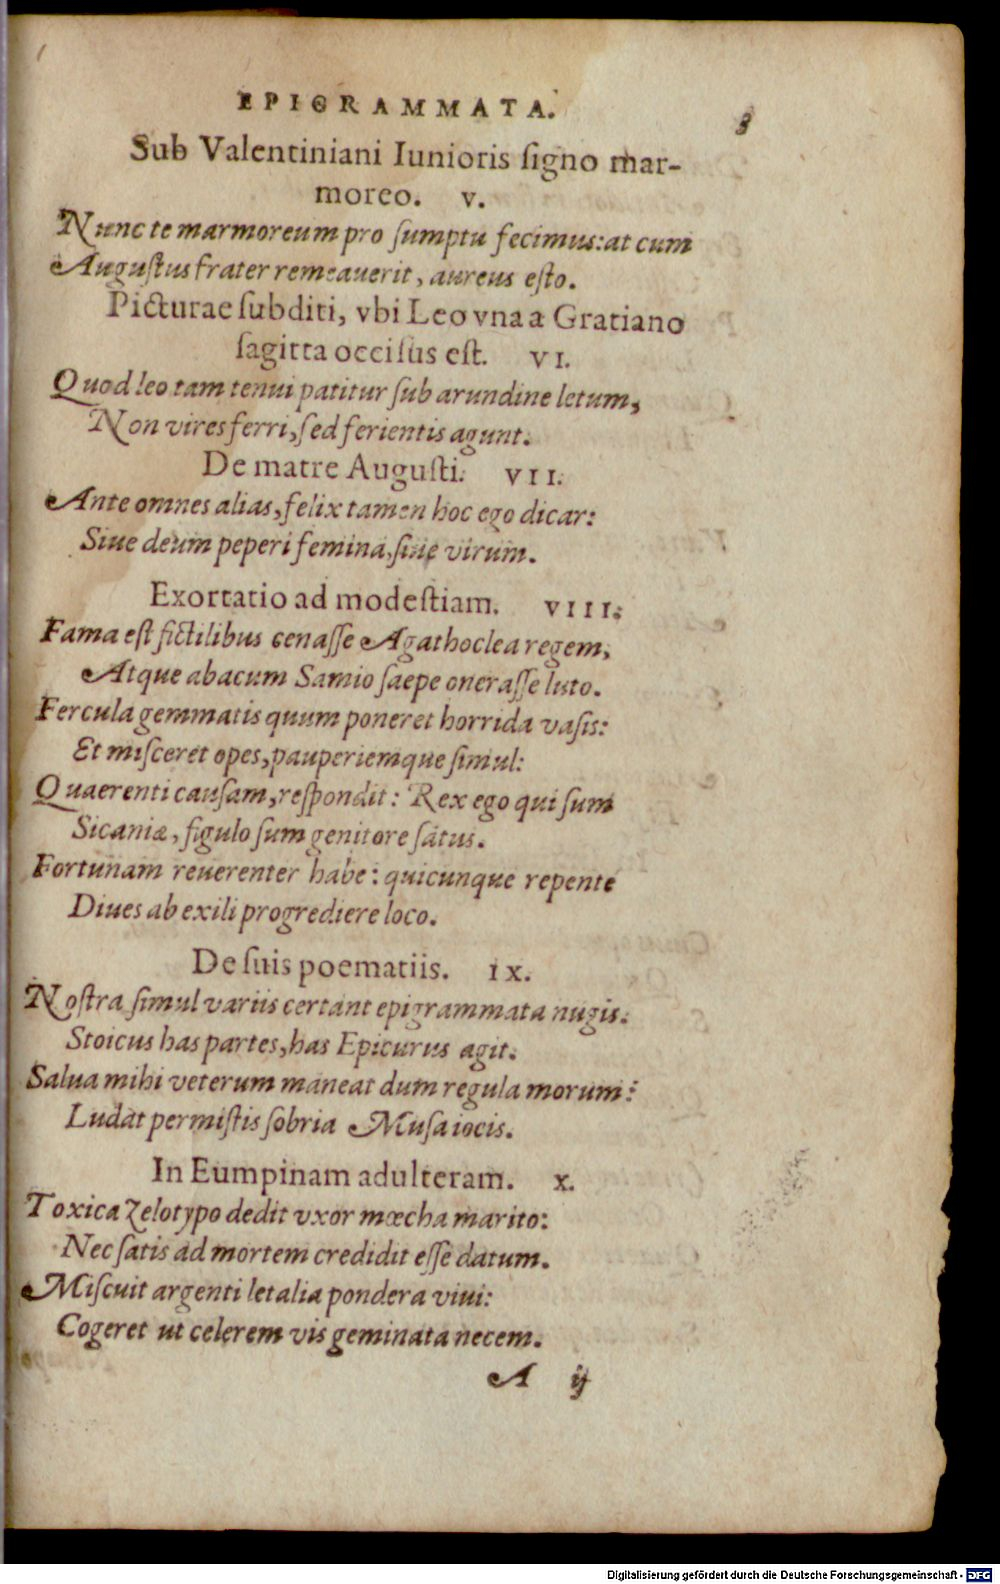 EPIGRAMMATA. 3
Sub Valentiniani Iunioris ſigno mar-
moreo. V.
Nunc te marmoreum pro ſumptu fecimus: at cum
Auguſtus frater remeauerit, aureus eſto.
Picturae ſubditi, vbi Leo vna a Gratiano
ſagitta occiſus eſt. VI.
Quod leo tam tenui patitur ſub arundine letum,
Non vires ferri, ſed ferientis agunt.
De matre Auguſti. VII.
Ante omnes alias, felix tamen hoc ego dicar:
Siue deum peperi femina, ſiue virum.
Exortatio ad modeſtiam. VIII.
Fama eſt fictilibus cenaſſe Agathoclea regem,
Atque abacum Samio ſaepe oneraſſe luto.
Fercula gemmatis quum poneret horrida vaſis:
Et miſceret opes, pauperiemque ſimul:
Quaerenti cauſam, reſpondit: Rex ego qui ſum
Sicaniæ, figulo ſum genitore ſatus.
Fortunam reuerenter habe: quicunque repente
Diues ab exili progrediere loco.
De ſuis poematiis. IX.
Noſtra ſimul variis certant epigrammata nugis.
Stoicus has partes, has Epicurus agit.
Salua mihi veterum maneat dum regula morum:
Ludat permiſtis ſobria Muſa iocis.
In Eumpinam adulteram. X.
Toxica zelotypo dedit vxor mœcha marito:
Nec ſatis ad mortem credidit eſſe datum.
Miſcuit argenti letalia pondera viui:
Cogeret ut celerem vis geminata necem.
A ij
Digitalisierung gefördert durch die Deutsche Forschungsgemeinschaft - DFG